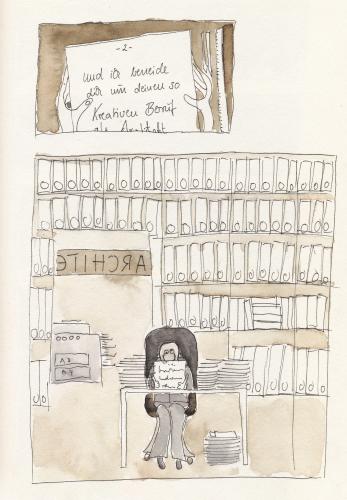 -2-
und ich beneide
dich um deinen so
kreativen Beruf
als Architekt
ARCHITE
A3
A4